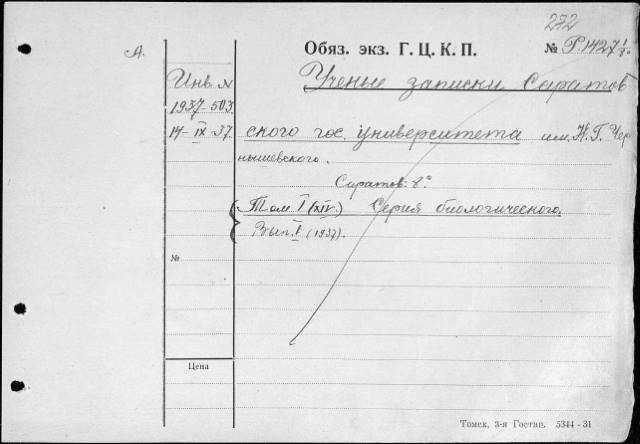 272
А.
Обяз. экз. Г. Ц. К. П.
№ Р.1427 1/1
Инв. №
1937-503
14-IX-37.
Ученые записки Саратов
ского гос. университета им. Н. Г. Чер
нышевского.
Саратов. 8°
Том I (XIV.) Серия биологического.
Вып. 1 (1937).
№
Цена
Томск, 3-я Гостип. 5344-31